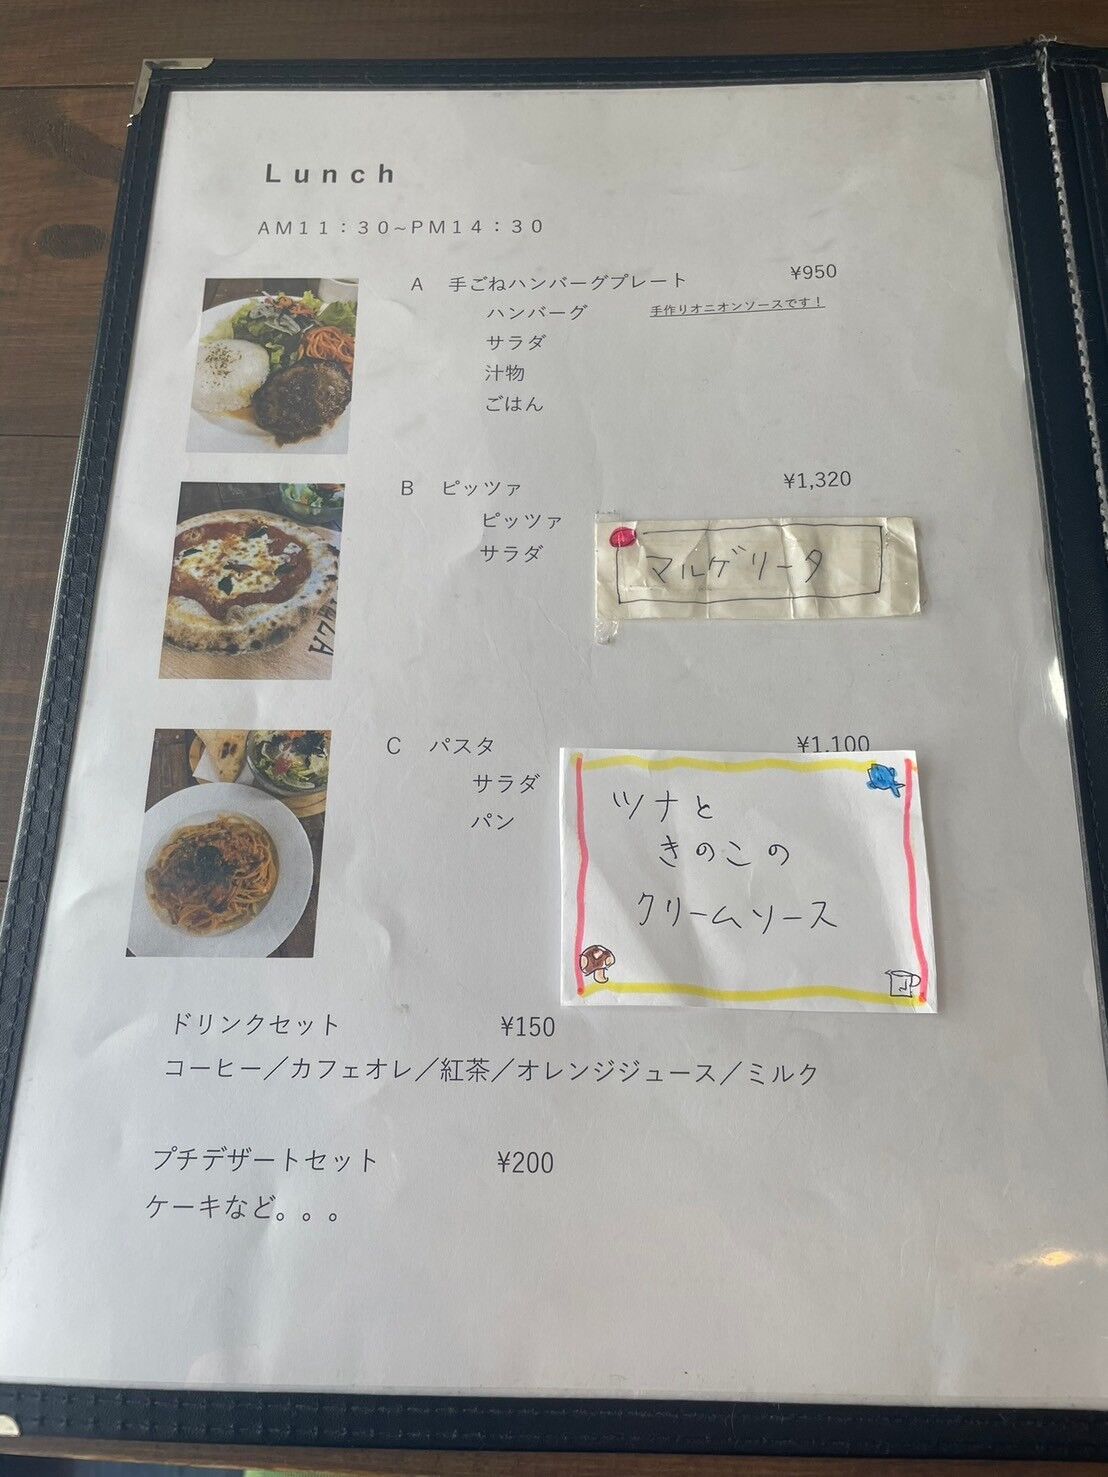 Lunch
AM11：30~PM14：30
A 手ごねハンバーグプレート ¥950
ハンバーグ 手作りオニオンソースです！
サラダ
汁物
ごはん
B ピッツァ ¥1,320
ピッツァ
サラダ
マルゲリータ
C パスタ ¥1,100
サラダ
パン
ツナと
きのこの
クリームソース
ドリンクセット ¥150
コーヒー／カフェオレ／紅茶／オレンジジュース／ミルク
プチデザートセット ¥200
ケーキなど。。。